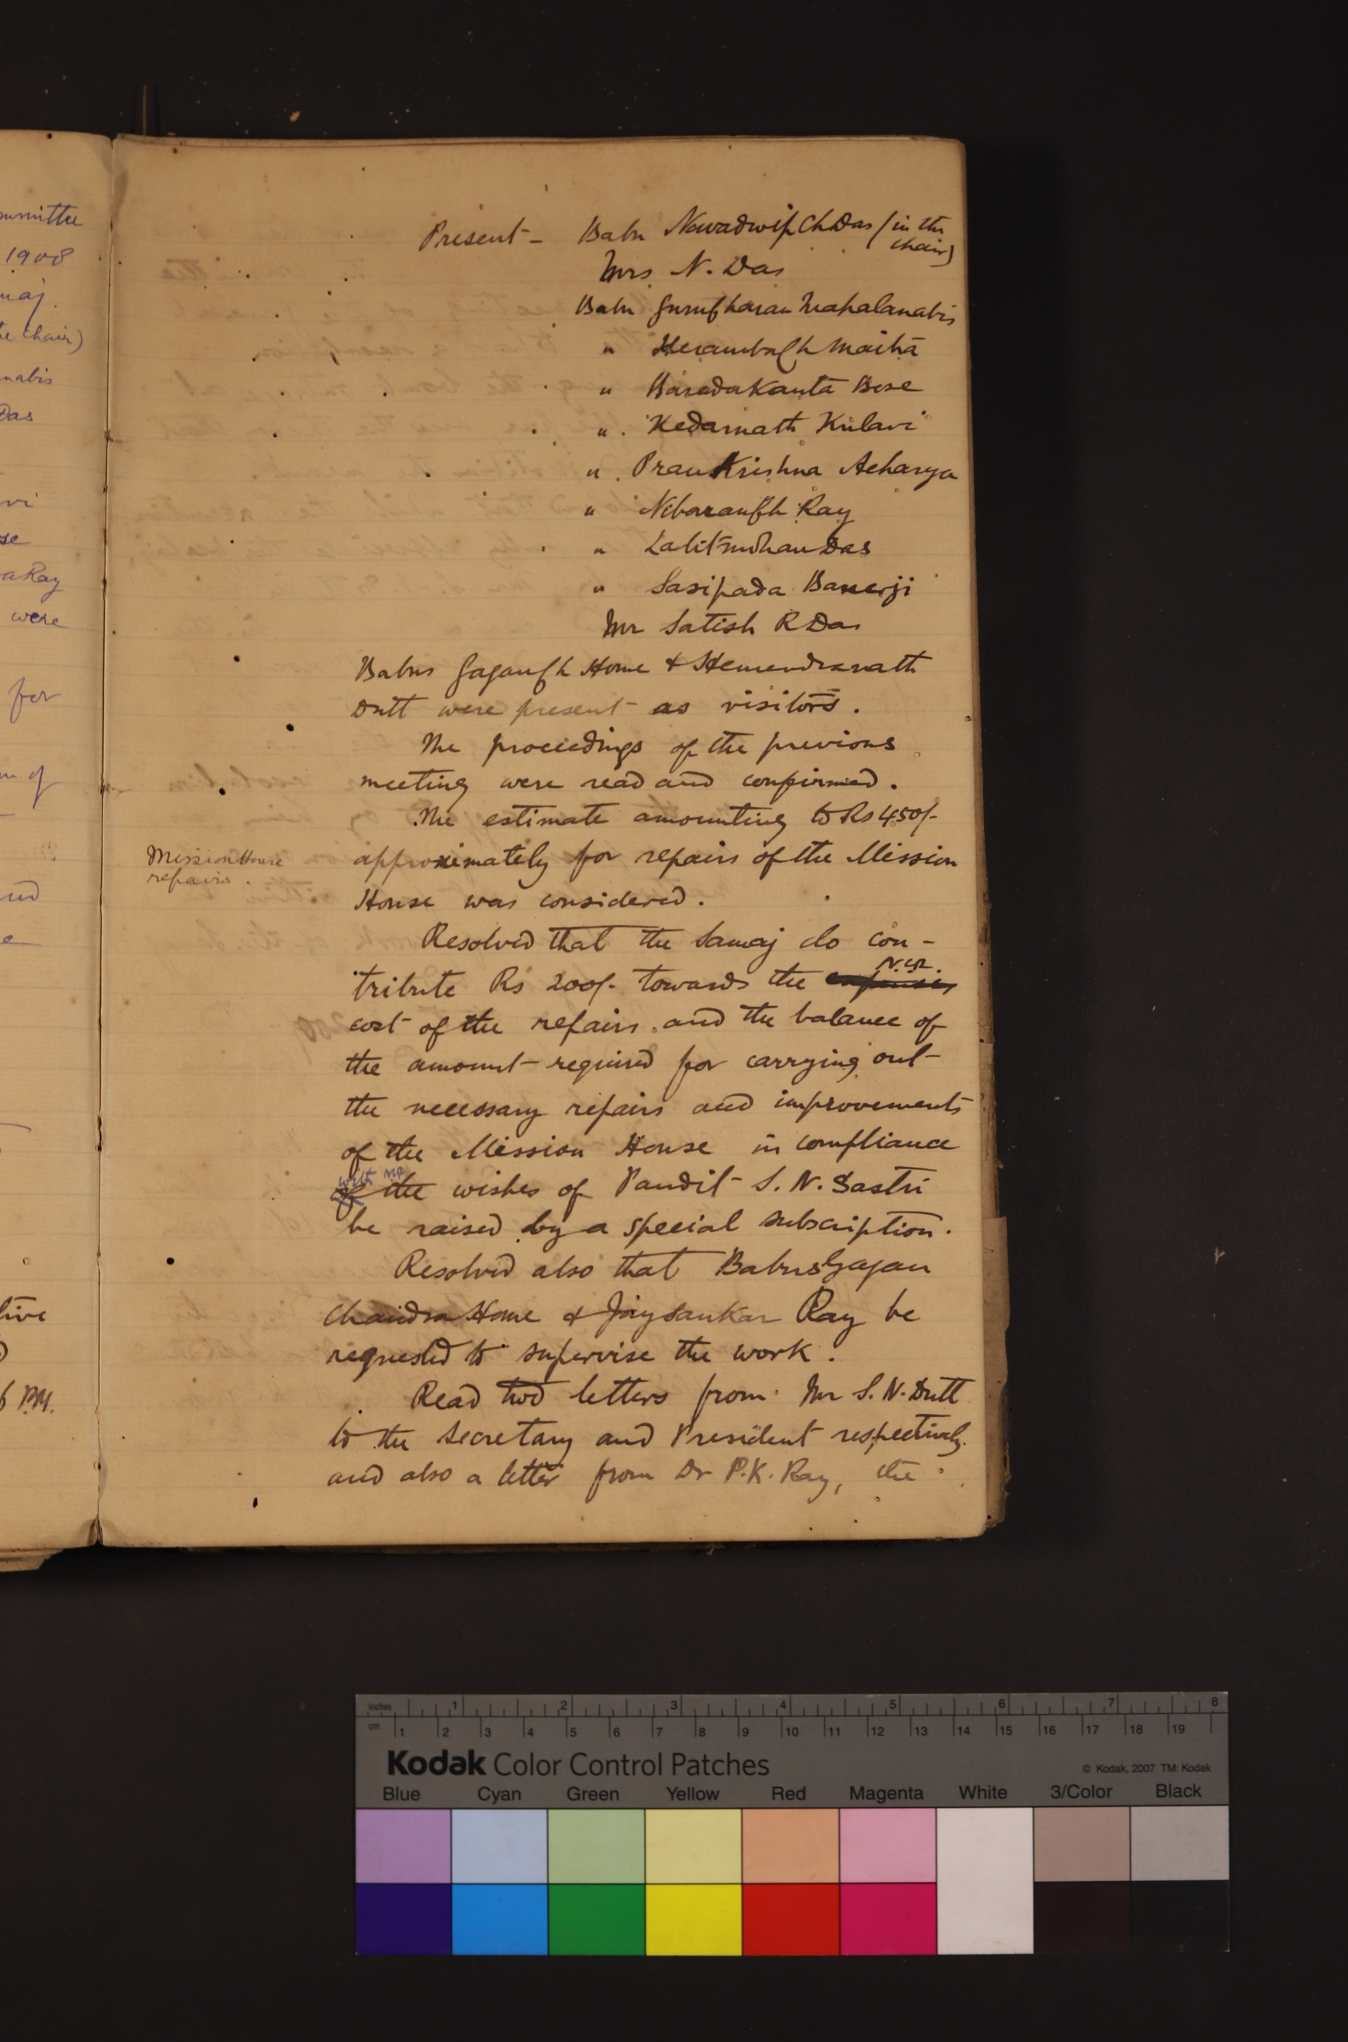 ommittee
1908
maj.
the chair)
nabis
Das
vi
se
a Ray
were
for
m of
und
e
tive
6 P.M.
Present - Babu Navadwip Ch Das (in the
chair)
Mrs N. Das
Babu Guruchharan Mahalanabis
" Heramba Ch Maitra
" Barada Kanta Bose
" Kedarnath Kulavi
" Pran Krishna Acharya
" Nibaran Ch Ray
" Lalit mohan Das
" Sasipada Banerji
Mr Satish R Das
Babus Gagan Ch Home & Hemendranath
Dutt were present as visitors.
The proceedings of the previous
meeting were read and confirmed.
The estimate amounting to Rs 450/-
Mission House
repairs.
approximately for repairs of the Mission
House was considered.
Resolved that the Samaj do con-
tribute Rs 200/- towards the expenses
cost of the repairs and the balance of
the amount required for carrying out
the necessary repairs and improvements
of the Mission House in compliance
with
of the wishes of Pandit S. N. Sastri
be raised by a special subscription.
Resolved also that Babus Gagan
Chandra Home & Joysankar Ray be
requested to supervise the work.
Read two letters from Mr S. N. Dutt
to the Secretary and President respectively
and also a letter from Dr P. K. Ray, the
inches 1 2 3 4 5 6 7 8
cm 1 2 3 4 5 6 7 8 9 10 11 12 13 14 15 16 17 18 19
Kodak Color Control Patches
© Kodak, 2007 TM: Kodak
Blue Cyan Green Yellow Red Magenta White 3/Color Black